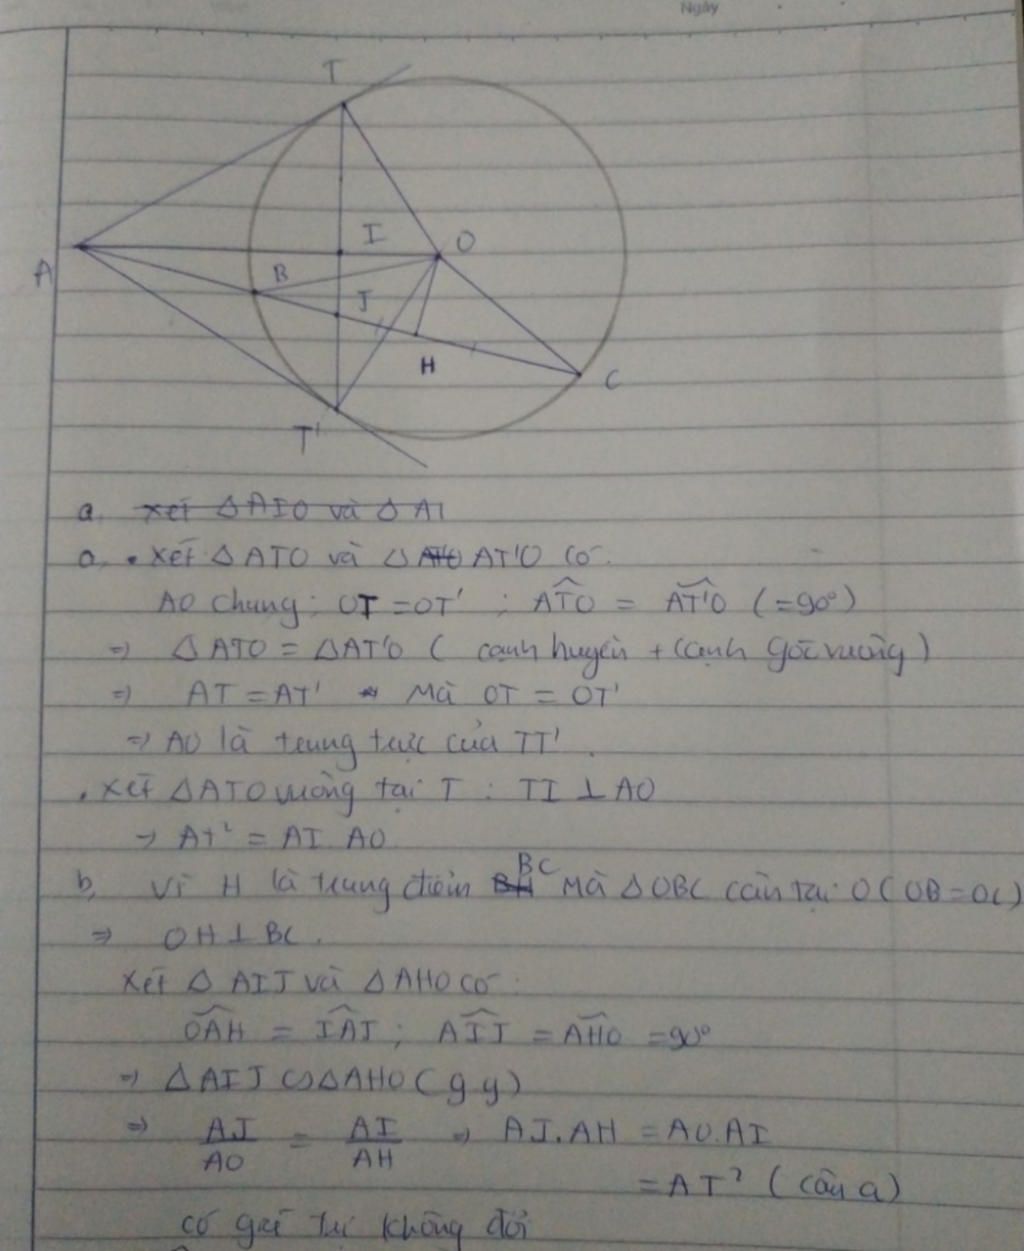 Ngày
T
I
O
A
B
J
H
C
T'
a, xét △AIO và △AI
a, • Xét △ATO và △AT'O có
AO chung; OT = OT' ; ATO = AT'O (=90°)
=> △ATO = △AT'O ( cạnh huyền + cạnh góc vuông )
=> AT = AT' Mà OT = OT'
=> AO là trung trực của TT'.
. Xét △ATO vuông tại T : TI ⊥ AO
→ AT² = AI . AO
b, Vì H là trung điểm BC Mà △OBC cân tại O ( OB = OC )
=> OH ⊥ BC.
Xét △ AIJ và △AHO có :
OAH = IAJ ; AIJ = AHO = 90°
=> △AIJ ∽ △AHO ( g g )
=> AJ/AO = AI/AH => AJ.AH = AO.AI
= AT² ( câu a )
có giá trị không đổi